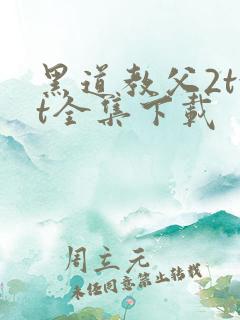 黑道教父2tx
t全集下载
周立元
未经同意禁止转载